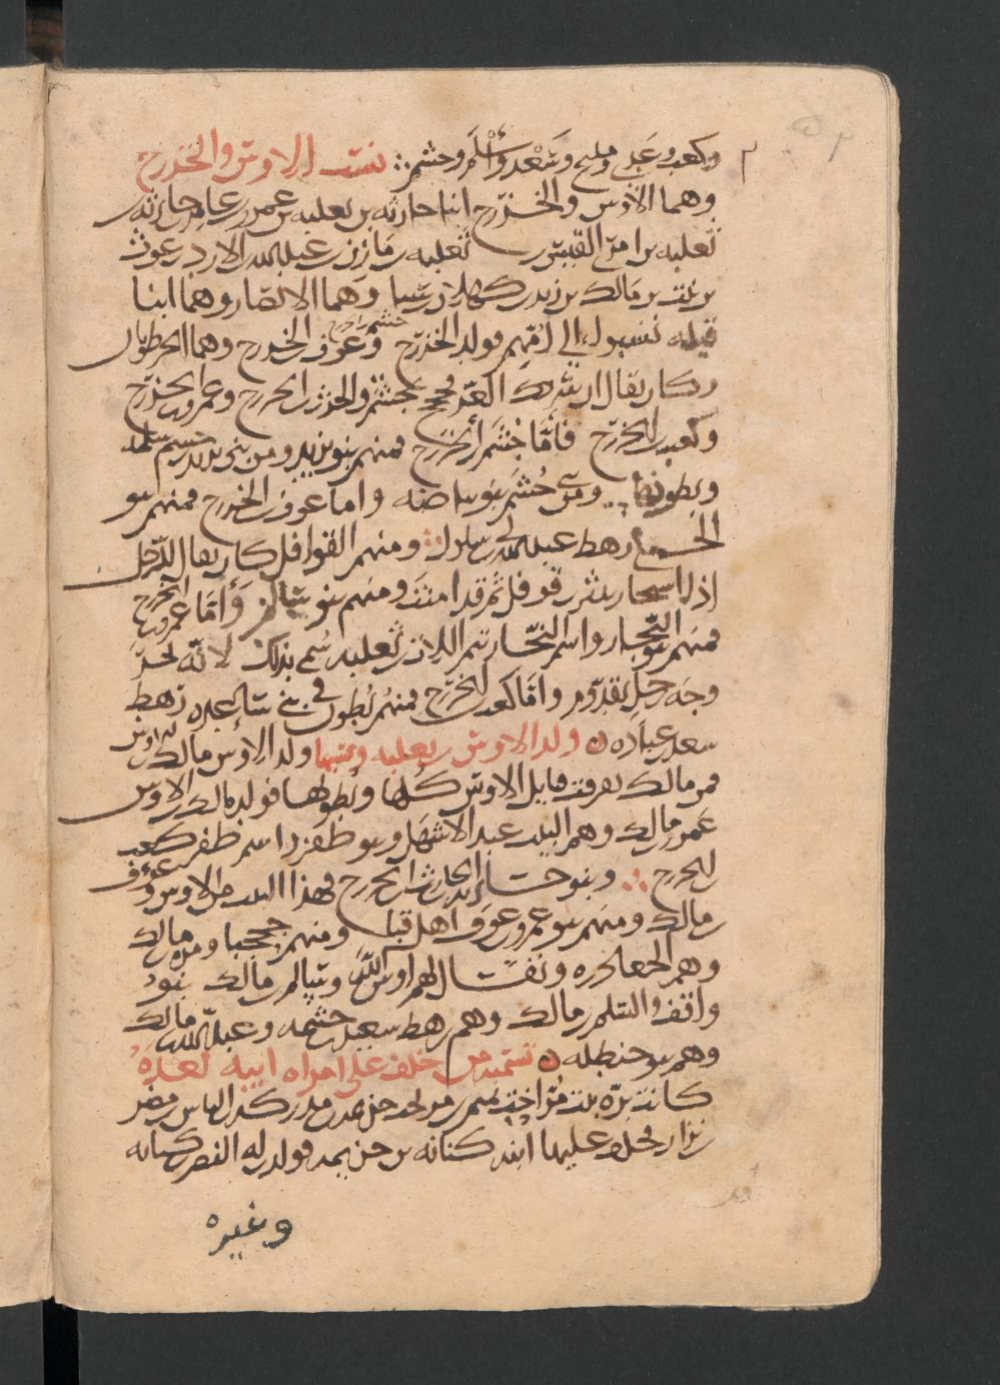 وكعب وعدي ومليح وسعد وأسلم وجشم نسب الاوس والخزرج
وهما الأوس والخزرج ابنا حارثه بن ثعلبه بن عمرو بن عامر بن حارثه بن
ثعلبه بن امرئ القيس بن ثعلبه بن مازن بن عبدالله بن الازد بن غوث
بن نبت بن مالك بن زيد بن كهلان بن سبا وهما الانصار وهما ابنا
قيله نسبوا الى أمهم فولد الخزرج جشم وعوف بن الخزرج وهما
وكان يقال ان سرك العز فجحجح بجشم والحرث بن الخزرج وعمرو بن الخزرج
وكعب بن الخزرج فأما جُشَم بن الخزرج فمنهم بنو تزيد ومن بني تزيد سلمه
وبطونها ومن جُشم بنو بياضه واما عوف بن الخزرج فمنهم بنو
الحبلى رهط عبدالله بن ابي سلول ومنهم القواقل كان يقال للرجل
اذا استجار بيثرب قوقل ثم قد امنت ومنهم بنو سالم وأما عمرو بن الخزرج
فمنهم بنو النجار واسم النجار تيم اللات بن ثعلبه سُمي بذلك لانه نجر
وجه رجل بقدوم واما كعب بن الخزرج فمنهم بُطون في بني ساعده رهط
سعد بن عباده ولد الاوس بن ثعلبه ونسبها ولد الاوس مالك بن اوس
فمن مالك تفرقت قبايل الاوس كلها وبُطونها فولد مالك بن الاوس
عمرو بن مالك وهم النبيت عبد الاشهل وبنو ظفر واسم ظفر كعب
بن الخزرج وبنو حارثة بن الحارث بن الخزرج فهذا النبيت من الاوس وعوف
بن مالك ومنهم بنو عمرو بن عوف اهل قبا ومنهم جحجبا ومره بن مالك
وهم الجعادره ويقال لهم اوس الله وسالم بن مالك بنو
واقف والسلم بن مالك وهم رهط سعد بن خيثمه وعبدالله بن مالك
وهم بنو خطمه تسميه من خلف على امراه ابيه بعده
كانت بره بنت مُرّ اخت تميم بن مر تحت خزيمه بن مدركه بن الياس بن مضر
بن نزار فخلف عليها ابنه كنانه بن خزيمه فولد له النضر بن كنانه
وغيره